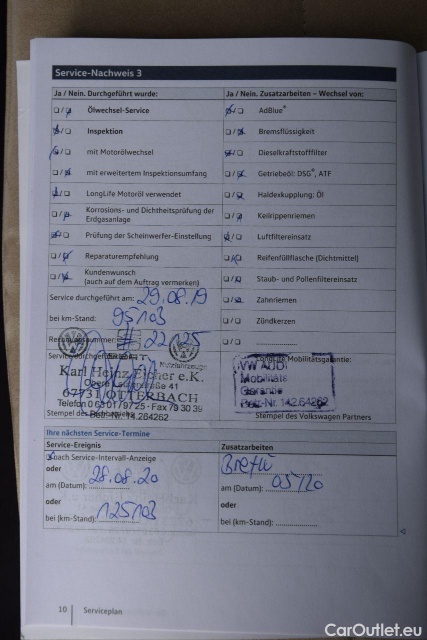 Service-Nachweis 3
Ja / Nein. Durchgeführt wurde:
Ölwechsel-Service
Inspektion
mit Motorölwechsel
mit erweitertem Inspektionsumfang
LongLife Motoröl verwendet
Korrosions- und Dichtheitsprüfung der
Erdgasanlage
Prüfung der Scheinwerfer-Einstellung
Reparaturempfehlung
Kundenwunsch
(auch auf dem Auftrag vermerken)
Service durchgeführt am: 29.08.19
bei km-Stand: 95103
Ja / Nein. Zusatzarbeiten – Wechsel von:
AdBlue®
Bremsflüssigkeit
Dieselkraftstofffilter
Getriebeöl: DSG®, ATF
Haldexkupplung: Öl
Keilrippenriemen
Luftfiltereinsatz
Reifenfüllflasche (Dichtmittel)
Staub- und Pollenfiltereinsatz
Zahnriemen
Zündkerzen
Nutzfahrzeuge
Karl Heinz
e.K.
67731 OTTERBACH
Telefon 0 63 01/97 25 · Fax 79 30 39
Betr.-Nr. 142.64262
Stempel des
LongLife Mobilitätsgarantie:
VW AUDI
Mobilitäts
Garantie
Betr.-Nr. 142.64262
Stempel des Volkswagen Partners
Ihre nächsten Service-Termine
Service-Ereignis
nach Service-Intervall-Anzeige
oder
am (Datum): 28.08.20
oder
bei (km-Stand): 125103
Zusatzarbeiten
am (Datum): 05/20
oder
bei (km-Stand):
10 Serviceplan
CarOutlet.eu